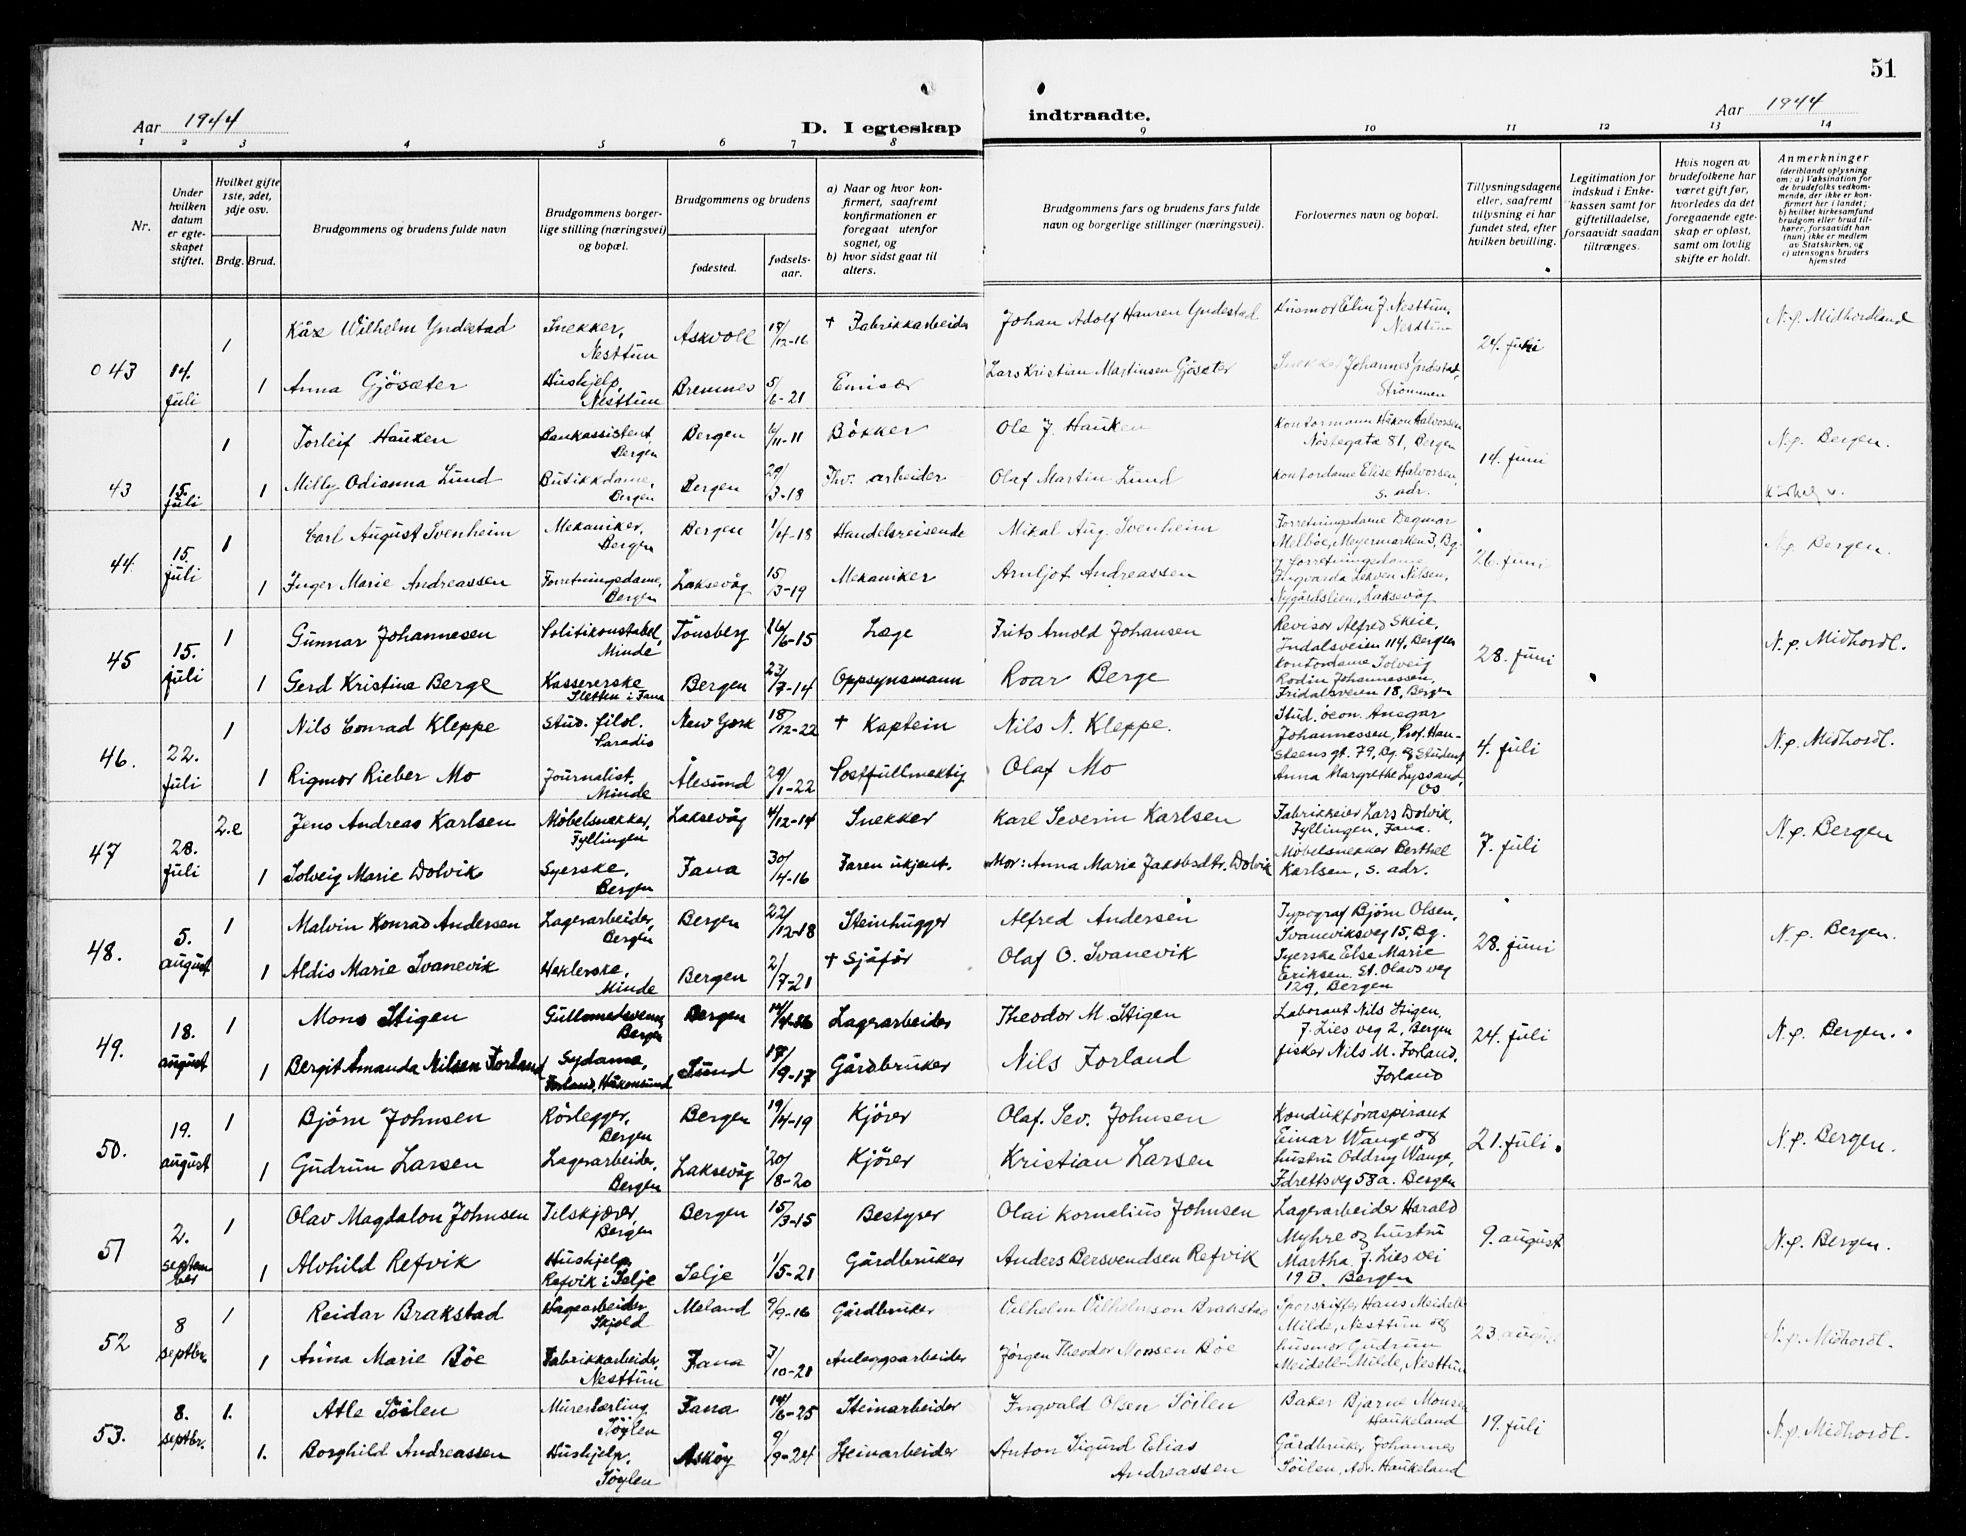 51
Aar 1944
D. I egteskap indtraadte.
Aar 1944
1 2 3 4 5 6 7 8 9 10 11 12 13 14
Nr.
Under hvilken datum er egteskapet stiftet.
Hvilket gifte 1ste, 2det, 3dje osv.
Brdg. Brud.
Brudgommens og brudens fulde navn
Brudgommens borgerlige stilling (næringsvei) og bopæl.
Brudgommens og brudens
fødested.
fødselsaar.
a) Naar og hvor konfirmert, saafremt konfirmationen er foregaat utenfor sognet, og
b) hvor sidst gaat til alters.
Brudgommens fars og brudens fars fulde navn og borgerlige stillinger (næringsvei).
Forlovernes navn og bopæl.
Tillysningsdagene eller, saafremt tillysning ei har fundet sted, efter hvilken bevilling.
Legitimation for indskud i Enkekassen samt for giftetilladelse, forsaavidt saadan tiltrænges.
Hvis nogen av brudefolkene har været gift før, hvorledes da det foregaaende egteskap er opløst, samt om lovlig skifte er holdt.
Anmerkninger
(deriblandt oplysning om: a) Vaksination for de brudefolks vedkommende, der ikke er konfirmert her i landet; b) hvilket kirkesamfund brudgom eller brud tilhører, forsaavidt han (hun) ikke er medlem av Statskirken, og c) utensogns bruders hjemsted
043 14. juli 1 Kåre Wilhelm Yndestad Snekker, Nesttun Askvoll 17/12-16 + Fabrikkarbeider Johan Adolf Hansen Yndestad Husmor Elin J. Nesttun, Nesttun 24. juni N.p. Midhordland
1 Anna Gjøsæter Hushjelp, Nesttun Bremnes 5/6-21 Emisær Lars Kristian Martinsen Gjøsæter Snekker Johannes Yndestad, Strømmen
43 15. juli 1 Torleif Hauken Bankassistent Bergen Bergen 6/11-11 Bøkker Ole J. Hauken Kontormann Håkon Halvorsen Nøstegata 81, Bergen 14. juni N.p. Bergen.
1 Milly Odianna Lund Butikkdame, Bergen Bergen 29/3-18 Thv. arbeider Olaf Martin Lund Kontordame Elise Halvorsen, s. adr.
44. 15. juli 1 Carl August Svenheim Mekaniker, Bergen Bergen 1/4-18 Handelsreisende Mikal Aug. Svenheim Forretningsdame Dagmar Melbøe, Meyermarken 3, Bg. 26. juni N.p. Bergen.
1 Inger Marie Andreassen Forretningsdame, Bergen Laksevåg 15/3-19 Mekaniker Arnljot Andreassen og Forretningsdame Ingvarda Lekven Nilsen, Nygårdslien, Laksevåg
45 15. juli 1 Gunnar Johannesen Politikonstabel, Minde Tønsberg 16/6-15 Læge Frits Arnold Johansen Revisor Alfred Skeie, Indalsveien 114, Bergen 28. juni N.p. Midhordl.
1 Gerd Kristine Berge Kassererske Sletten i Fana Bergen 23/7-14 Oppsynsmann Roar Berge Kontordame Solveig Rodin Johannessen, Fridalsveien 18, Bergen
46. 22. juli 1 Nils Conrad Kleppe Stud. filol. Paradis New York 18/12-22 + Kaptein Nils N. Kleppe. Stud. öcon. Ansgar Johannessen, Prof. Hansteens gt. 79, Bg. og student 4. juli N.p. Midhordl.
1 Rigmor Rieber Mo Journalist. Minde Ålesund 29/1-22 Postfullmektig Olaf Mo Anna Margrethe Lyssand, Os
47 28. juli 2.e Jens Andreas Karlsen Møbelsnekker, Fyllingen Laksevåg 4/12-14 Snekker Karl Severin Karlsen Fabrikkeier Lars Dolvik, Fyllingen, Fana. 7. juli N.p. Bergen
1 Solveig Marie Dolvik Syerske, Bergen Fana 30/4-16 Faren ukjent. Mor: Anna Marie Jakobsdtr. Dolvik Møbelsnekker Berthel Karlsen, s. adr.
48. 5. august 1 Malvin Konrad Andersen Lagerarbeider, Bergen Bergen 22/12-18 Steinhugger Alfred Andersen Typograf Bjørn Olsen, Svaneviksveg 15, Bg. 28. juni N.p. Bergen.
1 Aldis Marie Svanevik Heklerske, Minde Bergen 2/7-21 + Sjåfør Olaf O. Svanevik Syerske Else Marie Eriksen. St. Olavs veg 129, Bergen
49. 18. august 1 Mons Stigen Gullsmedsvenn, Bergen Bergen Lagerarbeider Theodor M. Stigen Laborant Nils Stigen, J. Lies veg 2, Bergen 24. juli N.p. Bergen.
1 Bergit Amanda Nilsen Forland Sydame, Forland, Håkonsund Sund 17/9-17 Gårdbruker Nils Forland fisker Nils M. Forland, Forland
50. 19. august 1 Bjørn Johnsen Rørlegger, Bergen Bergen 19/4-19 Kjører Olaf. Sev. Johnsen Konduktøraspirant Einar Wange og 21. juli. N.p. Bergen.
1 Gudrun Larsen Lagerarbeider, Bergen Laksevåg 20/8-20 Kjører Kristian Larsen hustru Oddny Wange, Idrettsveg 58a. Bergen
51 2. september 1 Olav Magdalon Johnsen Pelskjærer, Bergen Bergen 15/3-15 Bestyrer Olai Kornelius Johnsen Lagerarbeider Harald Myhre og hustru 9. august N.p. Bergen.
1 Alvhild Refvik Hushjelp Refvik i Selje Selje 1/5-21 Gårdbruker Anders Bersvendsen Refvik Martha J. Lies vei 19 D. Bergen
52 8 septbr. 1 Reidar Brakstad Hagearbeider, Skjold Meland 9/9-16 Gårdbruker Vilhelm Vilhelmson Brakstad Sporskifter Hans Meidell Milde, Nesttun og 23. august N.p. Midhordl.
1 Anna Marie Bøe Fabrikkarbeider, Nesttun Fana 3/10-21 Anleggsarbeider Jørgen Theodor Monsen Bøe husmor Gudrun Meidell-Milde, Nesttun
53. 8. septbr. 1. Atle Søilen Murerlærling Søylen Fana 14/6-25 Steinarbeider Ingvald Olsen Søilen Baker Bjarne Monsen Haukeland 19. juli N.p. Midhordl.
1. Borghild Andreassen Hushjelp, Søylen Askøy 9/9-24 Steinarbeider Anton Sigurd Elias Andreassen Gårdbruker Johannes Søilen, Adr. Haukeland